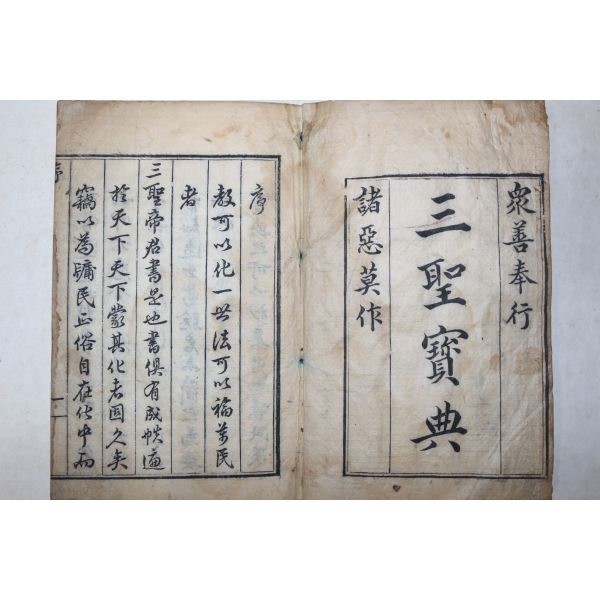 衆善奉行
三聖寶典
諸惡莫作
序
教可以化一世法可以福萬民
者
三聖帝君書是也書俱有成帙遍
於天下天下蒙其化者固久矣
竊以為牖民正俗自在化中而
序